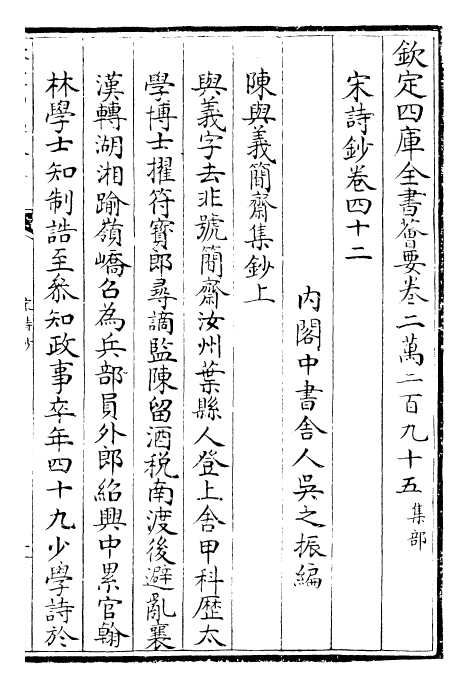 欽定四庫全書薈要卷二萬二百九十五 集部
宋詩鈔卷四十二
內閣中書舍人吳之振編
陳與義簡齋集鈔上
與義字去非號簡齋汝州葉縣人登上舍甲科歴太
學博士擢符寳郎尋謫監陳留酒税南渡後避亂襄
漢轉湖湘踰嶺嶠召為兵部員外郎紹興中累官翰
林學士知制誥至叅知政事卒年四十九少學詩於